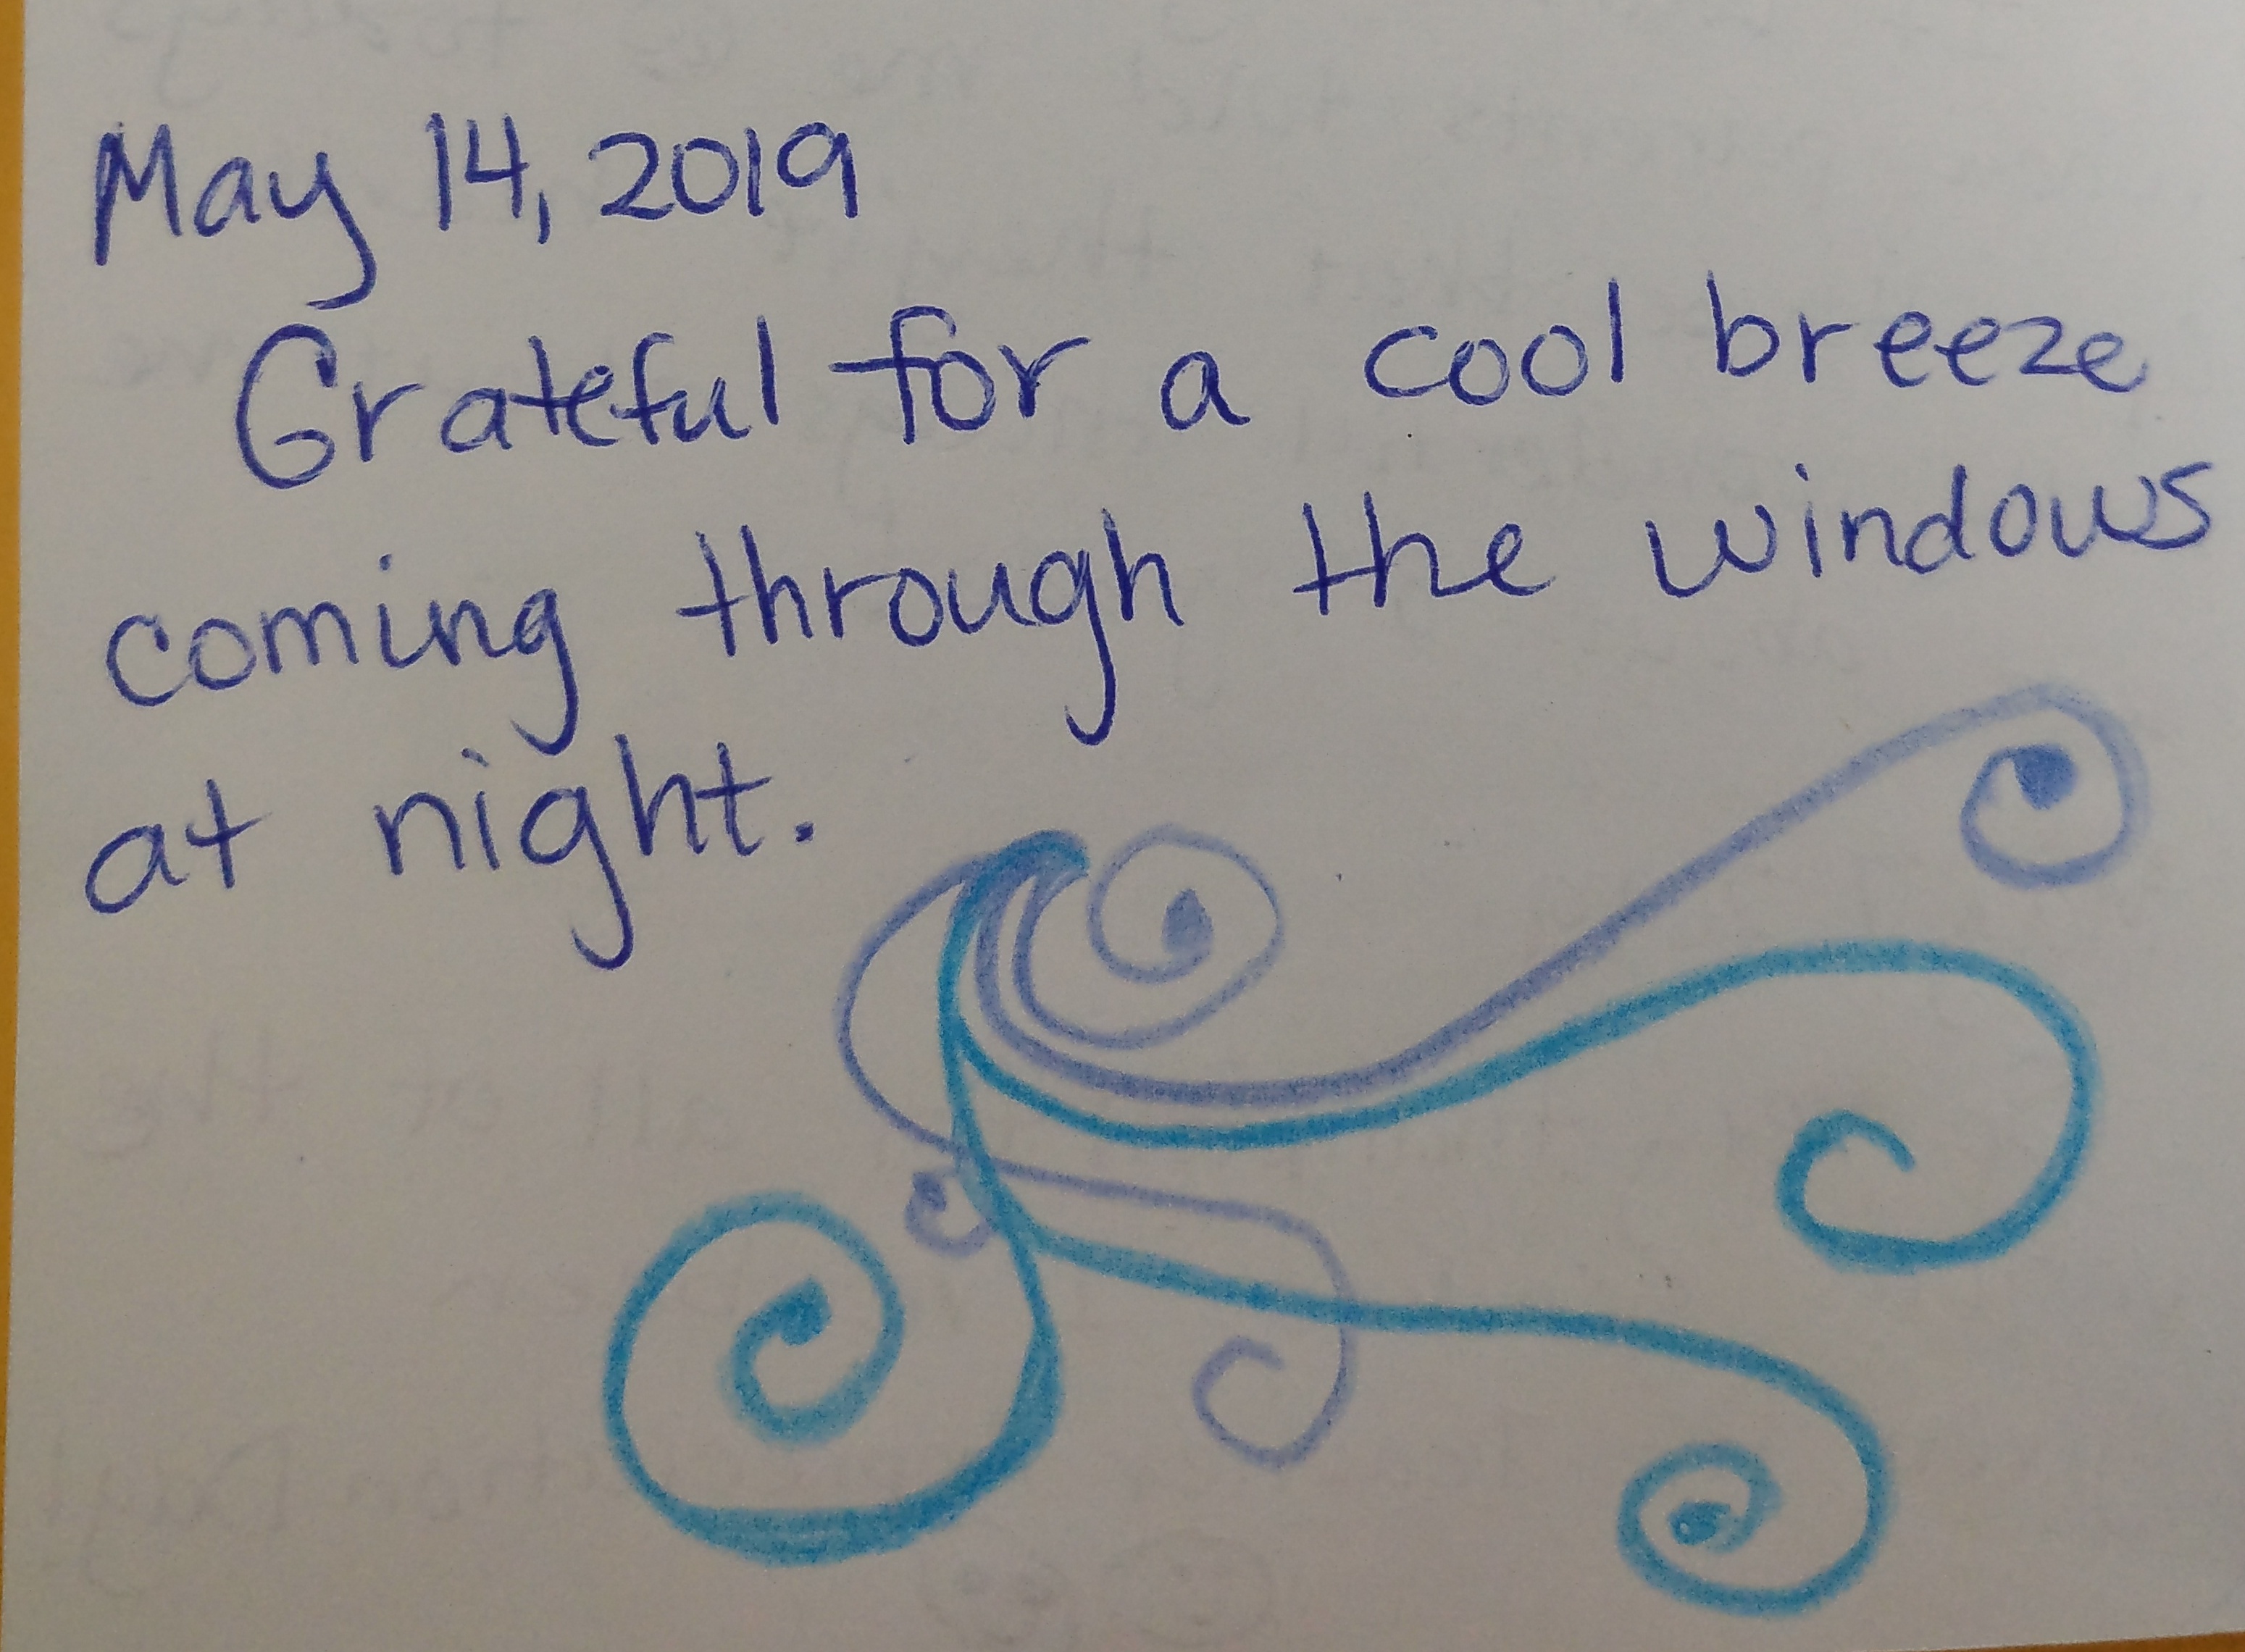 May 14, 2019
Grateful for a cool breeze
coming through the windows
at night.